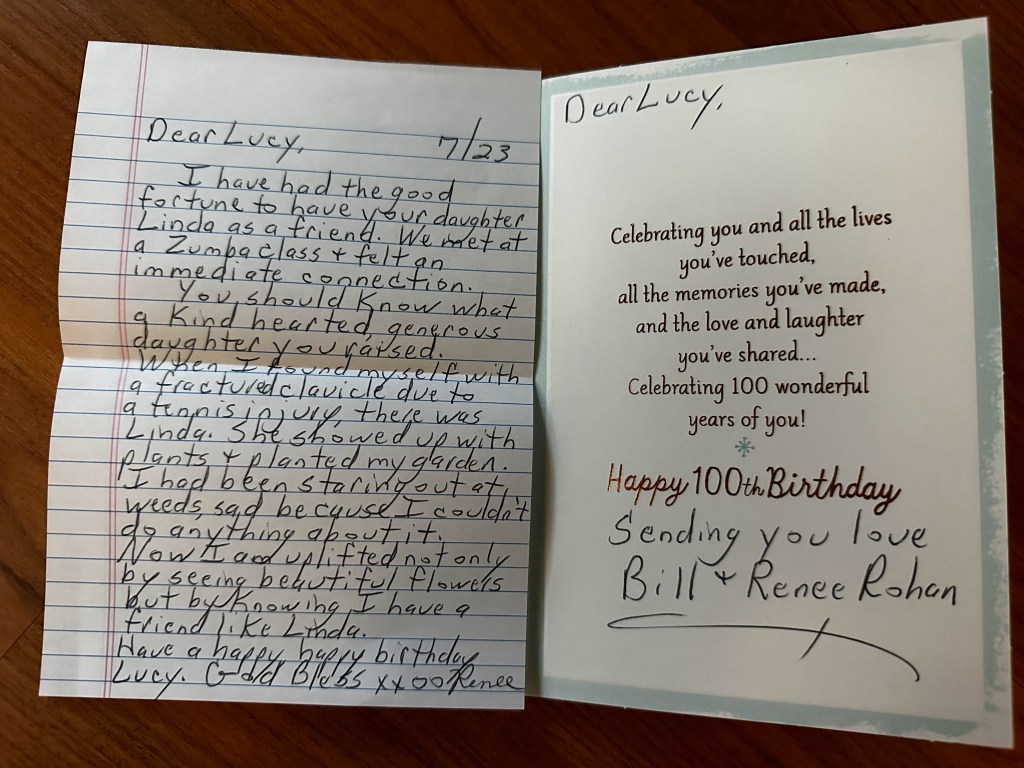 Dear Lucy,
7/23
I have had the good
fortune to have your daughter
Linda as a friend. We met at
a Zumba class + felt an
immediate connection.
You should know what
a kind hearted, generous
daughter you raised.
When I found myself with
a fractured clavicle due to
a tennis injury, there was
Linda. She showed up with
plants + planted my garden.
I had been staring out at
weeds, sad because I couldn't
do anything about it.
Now I am uplifted not only
by seeing beautiful flowers
but by knowing I have a
friend like Linda.
Have a happy, happy birthday
Lucy. God Bless xxoo Renee
Dear Lucy,
Celebrating you and all the lives
you've touched,
all the memories you've made,
and the love and laughter
you've shared...
Celebrating 100 wonderful
years of you!
Happy 100th Birthday
Sending you love
Bill + Renee Rohan